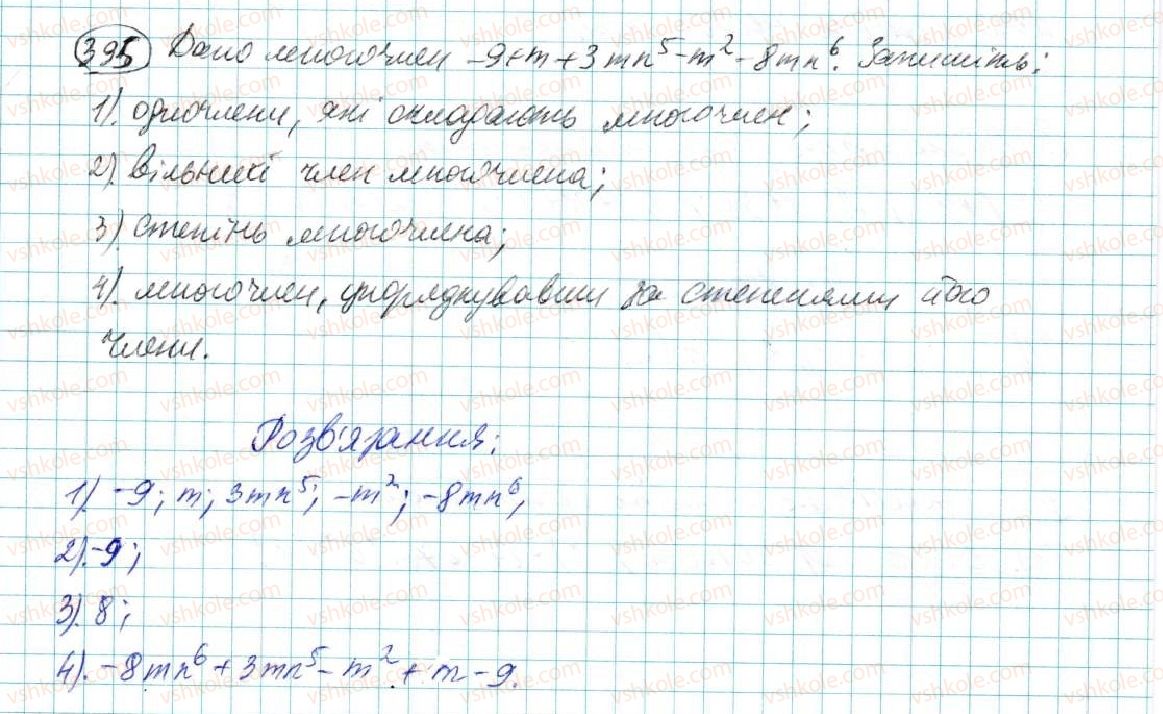 395 Дано многочлен -9+m+3mn⁵-m²-8mn⁶. Запишіть:
1). одночлени, які складають многочлен;
2). вільний член многочлена;
3). степінь многочлена;
4). многочлен, упорядкувавши за степенями його
члени.
Розв'язання:
1). -9; m; 3mn⁵; -m²; -8mn⁶;
2). -9;
3). 8;
4). -8mn⁶ + 3mn⁵ - m² + m - 9.